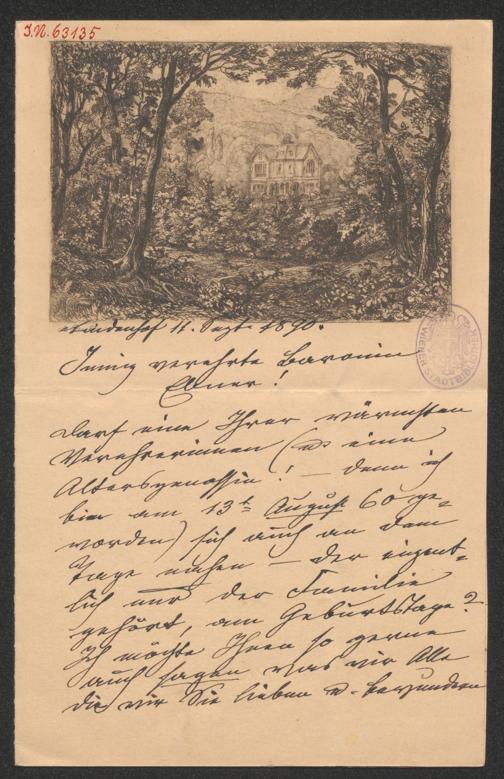 J.N. 63135
Lindenhof 11. Sept. 1890.
Innig verehrte Baronin
Ebner!
Darf eine Ihrer wärmsten
Verehrerinnen (u. eine
Altersgenossin! – denn ich
bin am 13t August 60 ge-
worden) sich auch an dem
Tage nahen – der eigent-
lich nur der Familie
gehört, am Geburtstage?
Ich möchte Ihnen so gerne
auch sagen was wir Alle
die wir Sie lieben u. bewundern